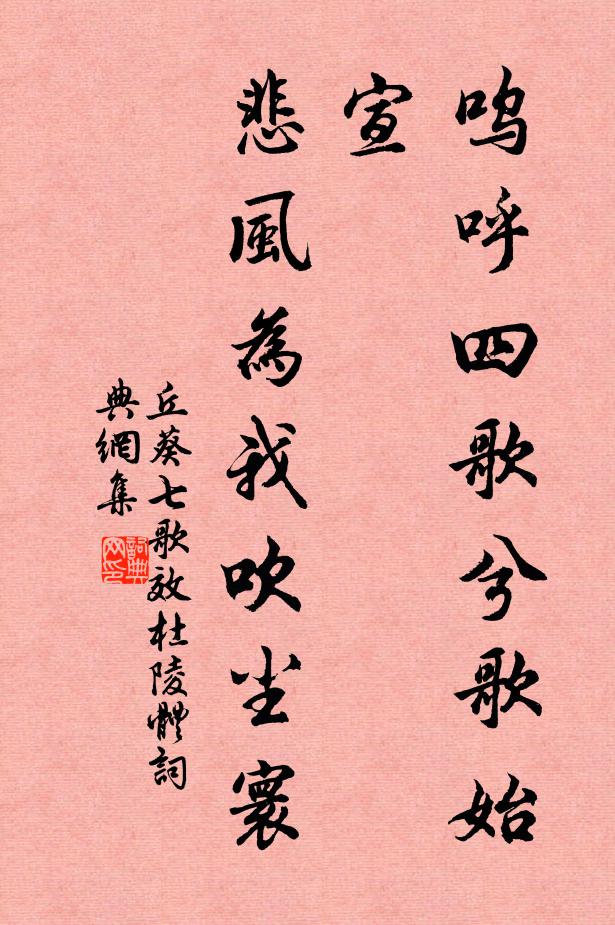 嗚呼四歌兮歌始
宣
悲風為我吹坐寰
丘葵七歌效杜陵體詞
典網集
詞典
网印